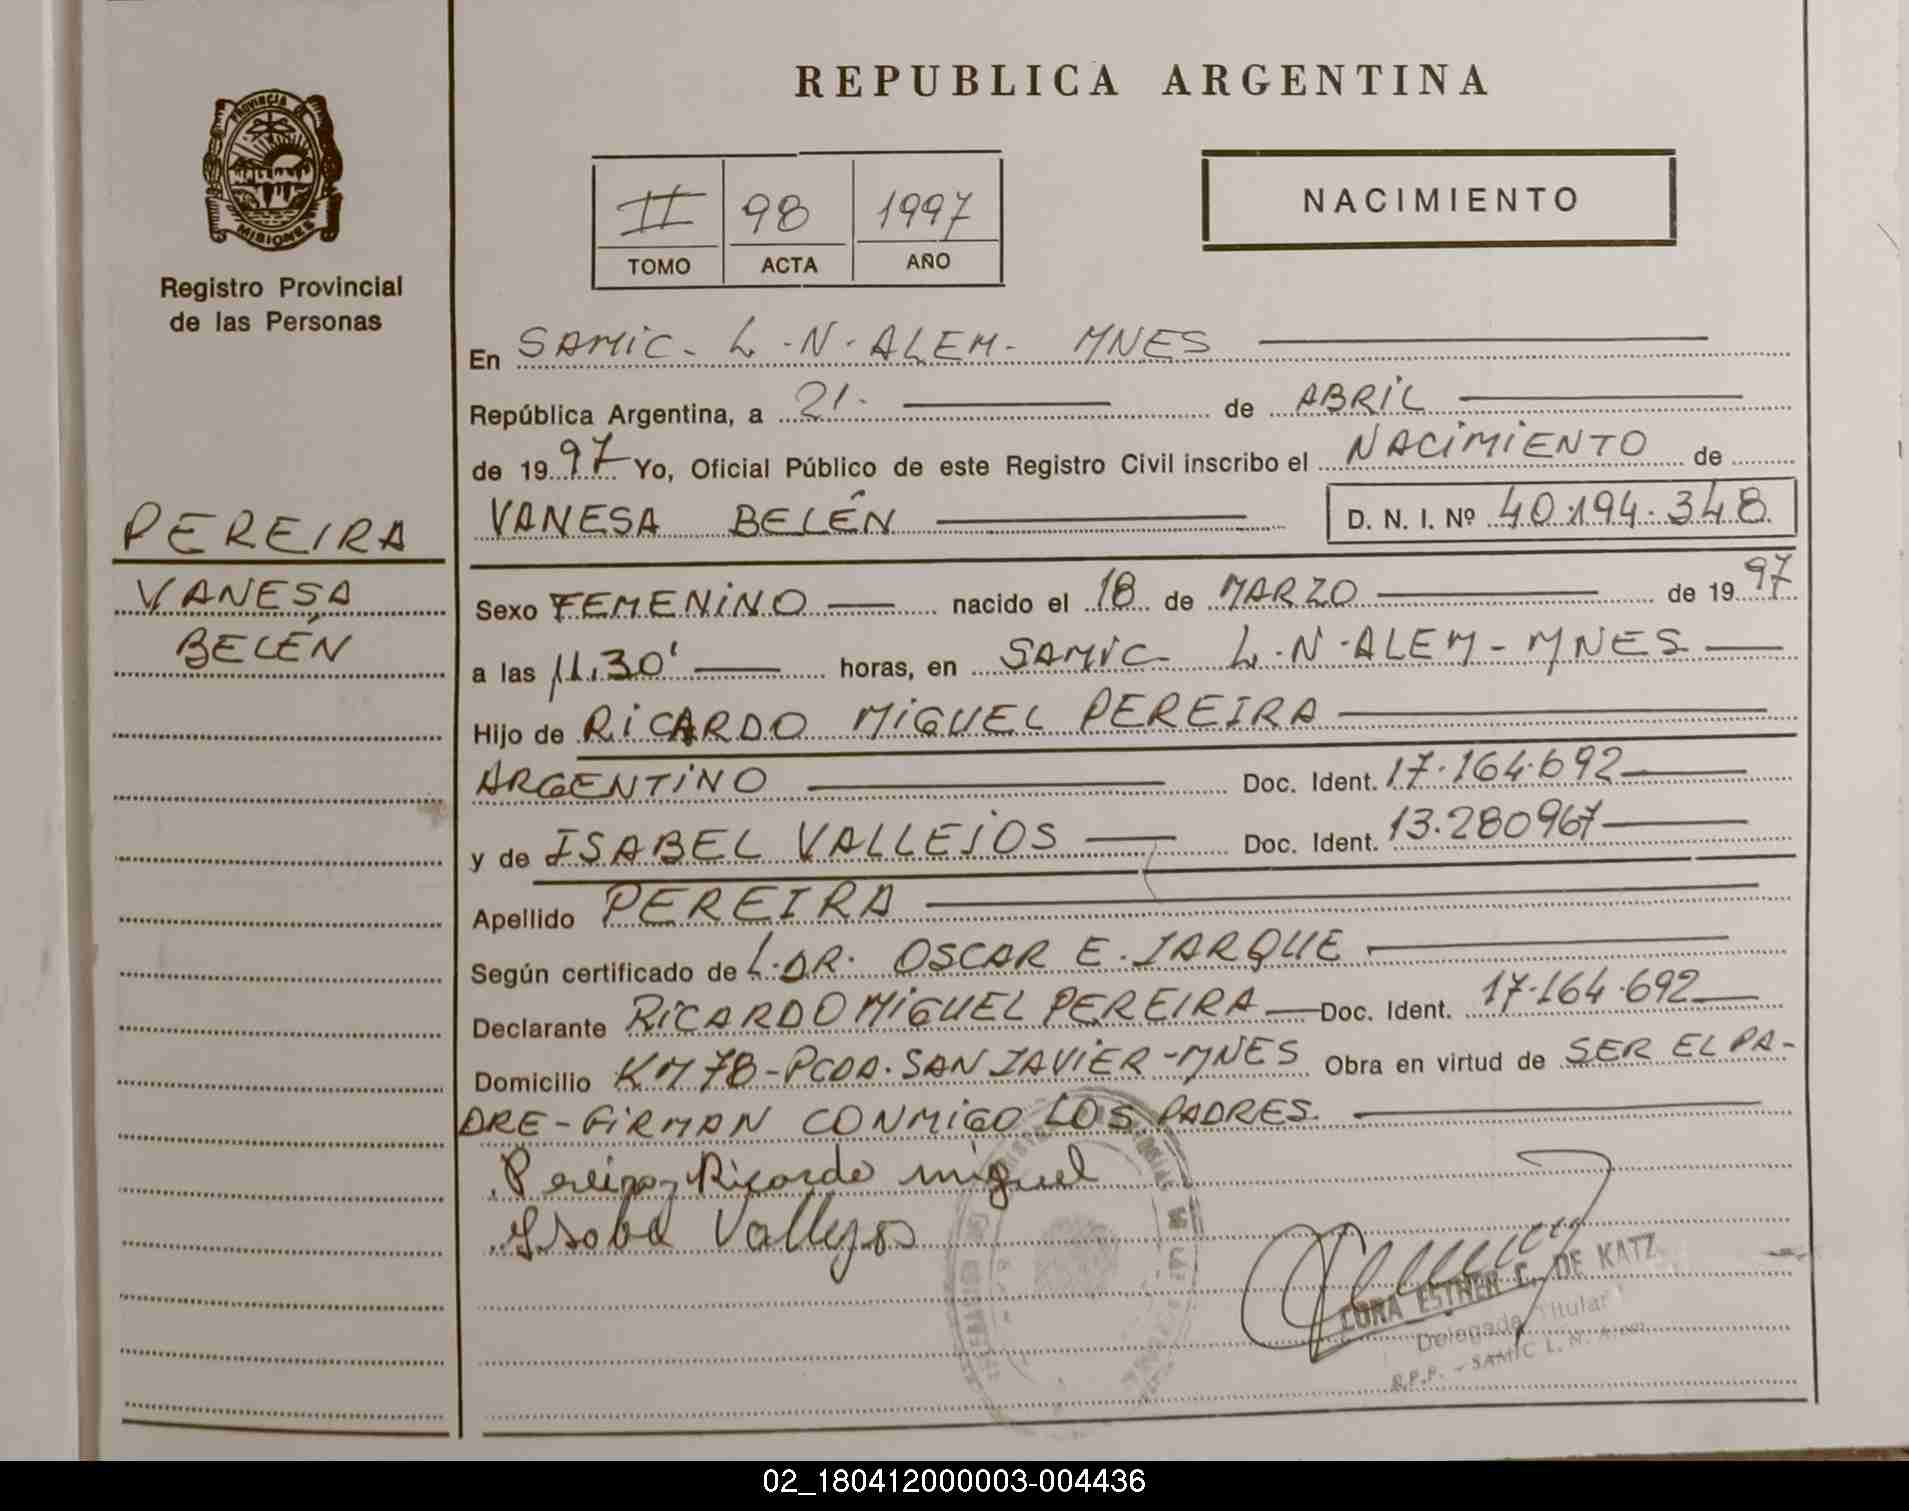 REPUBLICA ARGENTINA
PROVINCIA DE
MISIONES
Registro Provincial
de las Personas
II 98 1997
TOMO ACTA AÑO
NACIMIENTO
En SAMIC - L.N. ALEM - MNES
República Argentina, a 21. de ABRIL
de 1997 Yo, Oficial Público de este Registro Civil inscribo el NACIMIENTO de
VANESA BELÉN D. N. I. Nº 40.194.348
PEREIRA
VANESA
BELÉN
Sexo FEMENINO nacido el 18 de MARZO de 1997
a las 11.30' horas, en SAMIC L.N. ALEM - MNES
Hijo de RICARDO MIGUEL PEREIRA
ARGENTINO Doc. Ident. 17.164.692
y de ISABEL VALLEJOS Doc. Ident. 13.280967
Apellido PEREIRA
Según certificado de L. DR. OSCAR E. JARQUE
Declarante RICARDO MIGUEL PEREIRA Doc. Ident. 17.164.692
Domicilio KM 78 - PCDA. SAN JAVIER - MNES Obra en virtud de SER EL PA-
DRE - FIRMAN CONMIGO LOS PADRES.
Pereira, Ricardo miguel
Isabel Vallejos
ESTHER C. DE KATZ
Delegada Titular
R.P.P. - SAMIC L. N. Alem
02_180412000003-004436